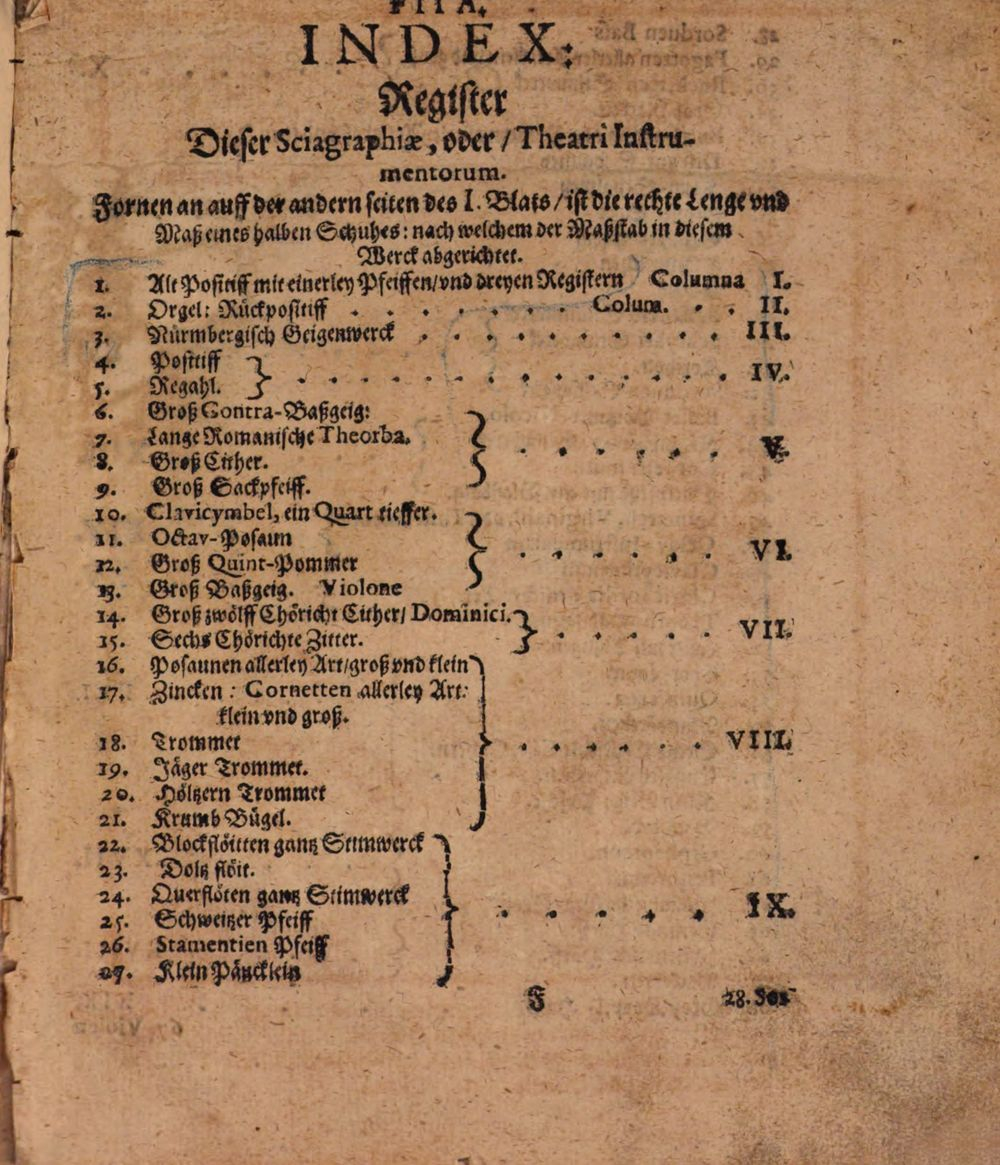 INDEX:
Regiſter
Dieſer Sciagraphiæ, oder / Theatri Inſtru-
mentorum.
Fornen an auff der andern ſeiten des I. Blats / iſt die rechte Lenge vnd
Maß eines halben Schuhes: nach welchem der Maßſtab in dieſem
Werck abgerichtet.
1. Alt Poſitiff mit einerley Pfeiffen/vnd dreyen Regiſtern Columna I.
2. Orgel: Rückpoſitiff . . . . . . Colum. . . II.
3. Nürmbergiſch Geigenwerck . . . . . . . . . . III.
4. Poſitiff
5. Regahl. } . . . . . . . . . . . . IV.
6. Groß Contra-Baßgeig:
7. Lange Romaniſche Theorba.
8. Groß Cither. } . . . . . . V.
9. Groß Sackpfeiff.
10. Clavicymbel, ein Quart tieffer.
11. Octav-Poſaun
12. Groß Quint-Pommer } . . . . . . VI.
13. Groß Baßgeig. Violone
14. Groß zwölff Chöricht Cither/ Dominici.
15. Sechs Chörichte Zitter. } . . . . . VII.
16. Poſaunen allerley Art/groß vnd klein
17. Zincken: Cornetten allerley Art:
klein vnd groß.
18. Trommet } . . . . . . VIII.
19. Jäger Trommet.
20. Höltzern Trommet
21. Krumb Bügel.
22. Blockflöitten gantz Stimwerck
23. Doltz flöit.
24. Querflöten gantz Stimwerck
25. Schweitzer Pfeiff } . . . . . IX.
26. Stamentien Pfeiff
27. Klein Päucklein
F 28. Sor